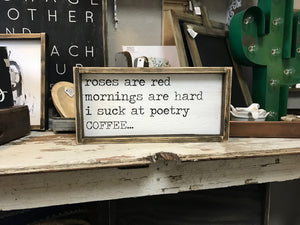 OTHER
AND
EACH
UP
roses are red
mornings are hard
i suck at poetry
COFFEE...